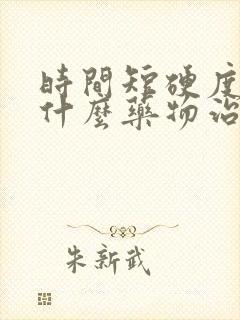 時間短硬度
什麼藥物治
朱新武